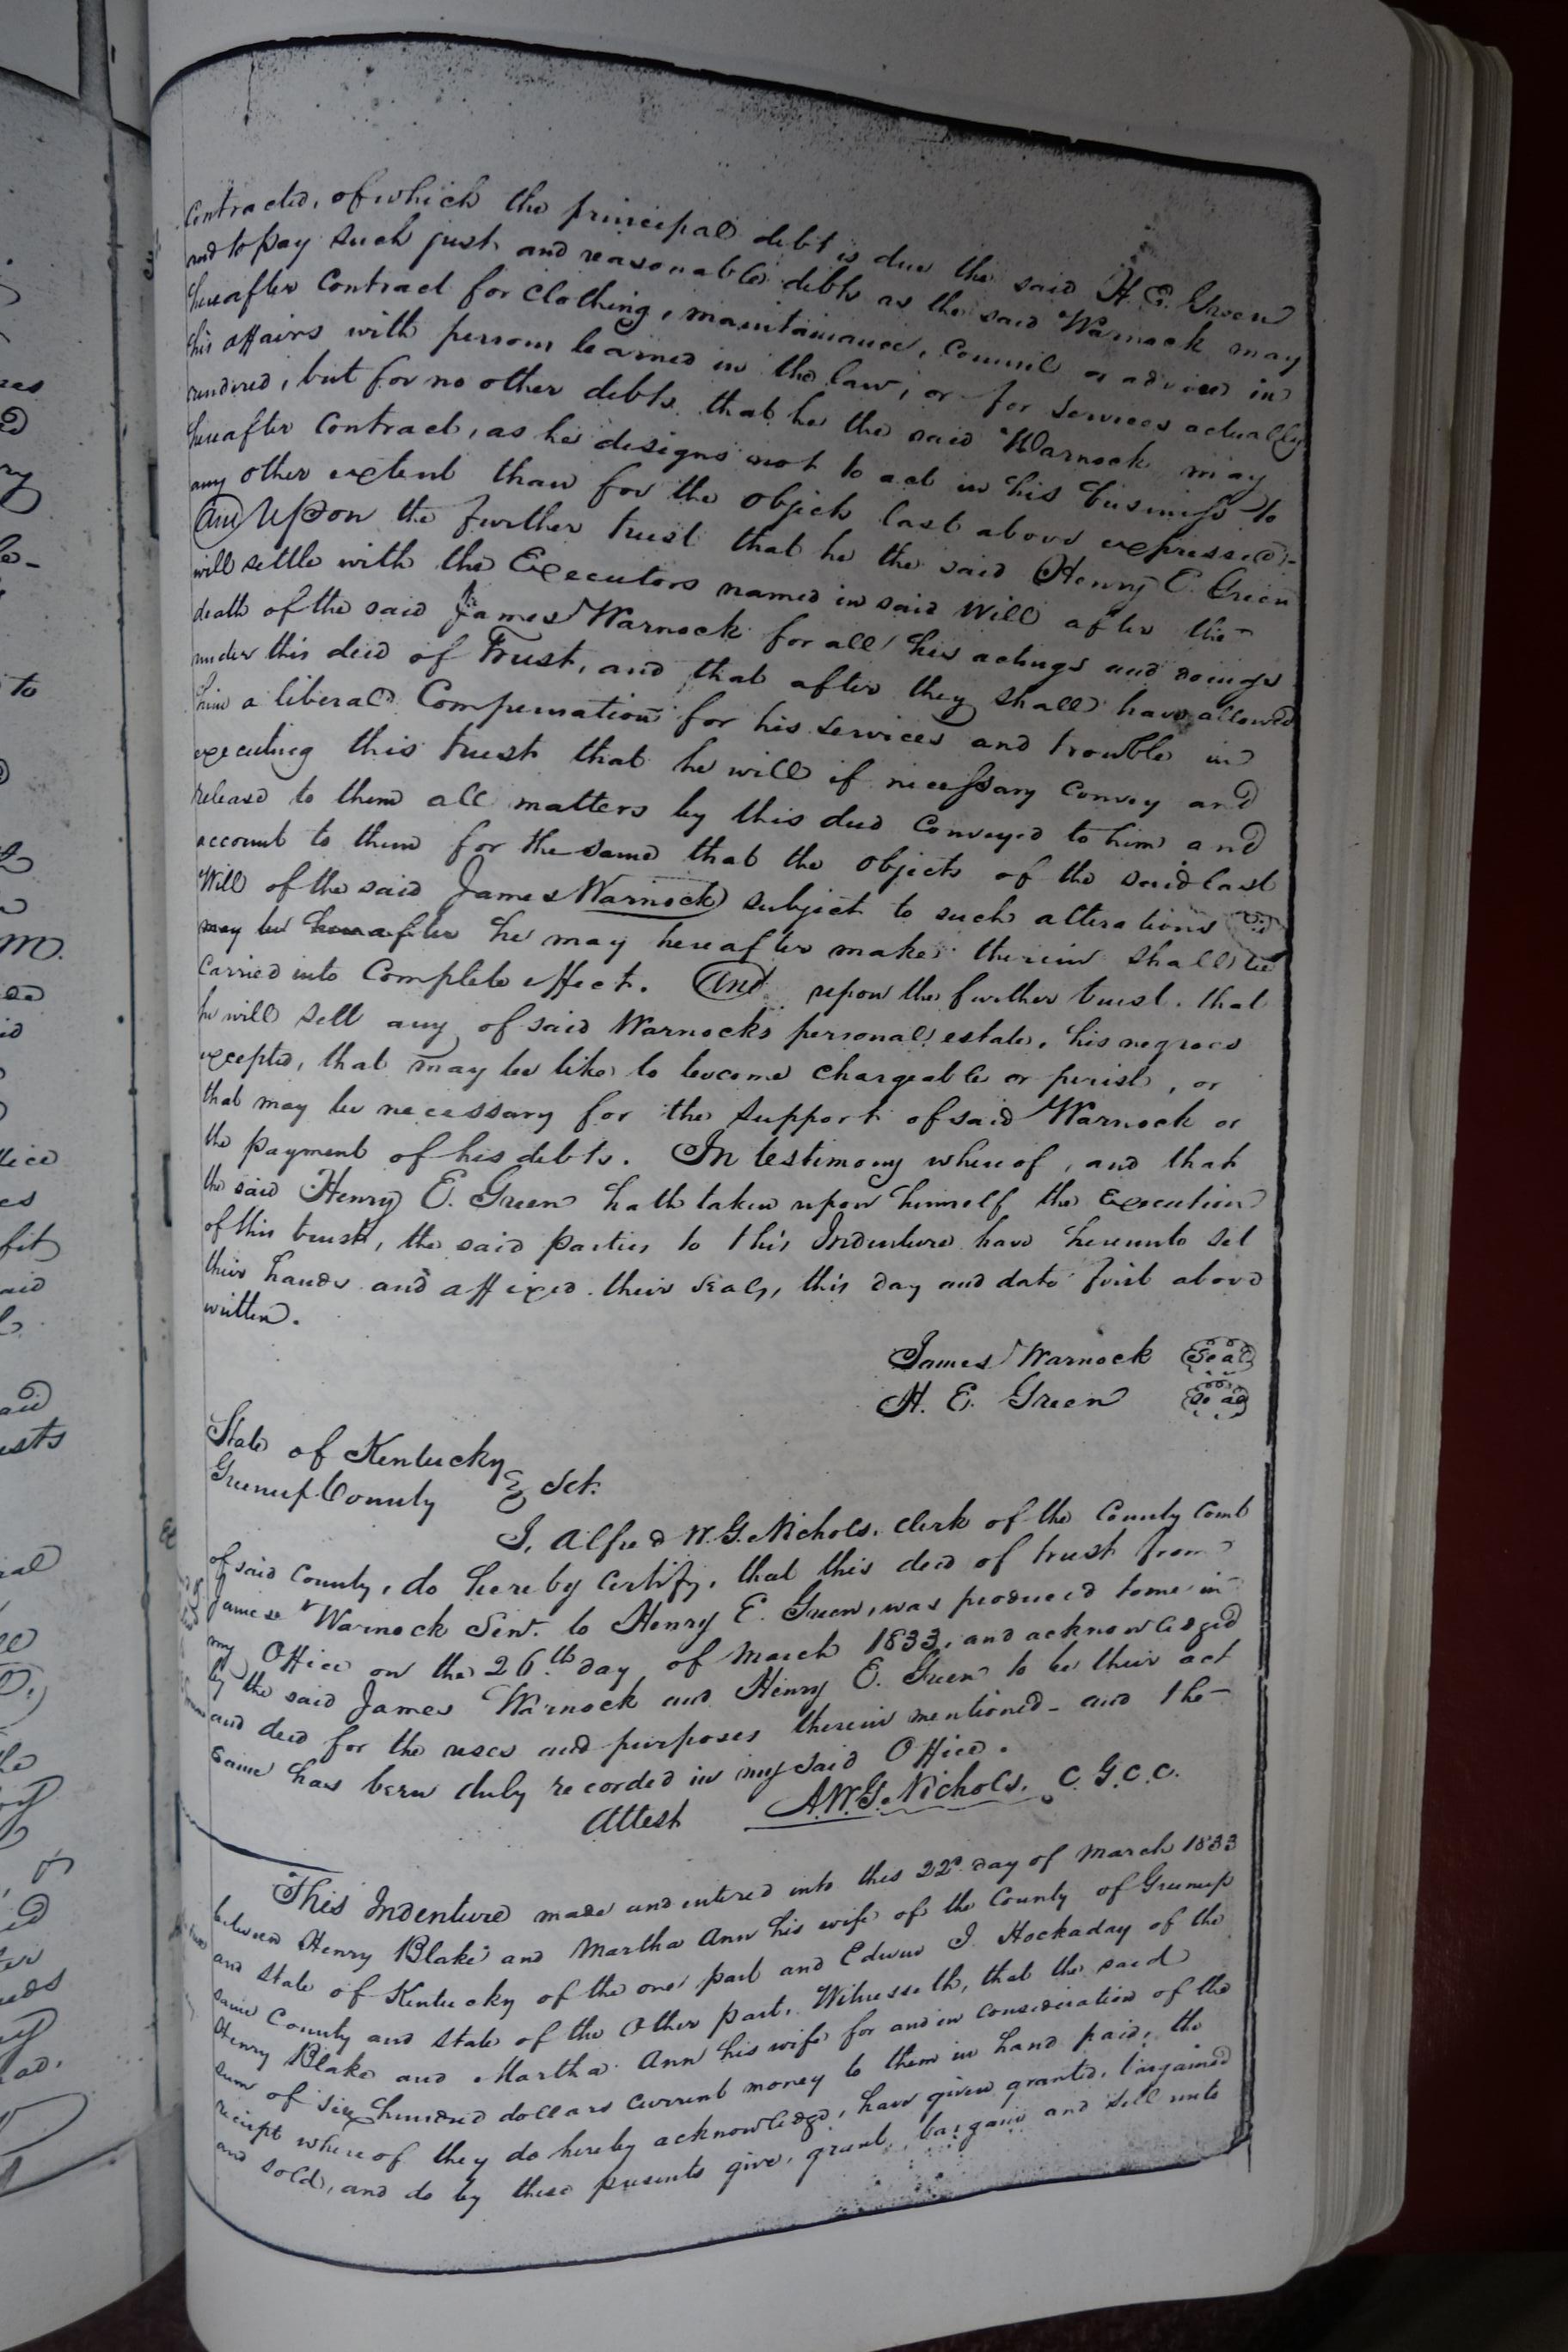 contracted, of which the principal debt is due the said H. E. Green
and to pay such just and reasonable debts as the said Warnock may
hereafter contract for clothing, maintainance, council or advice in
his affairs with persons learned in the law, or for services actually
rendered, but for no other debts that he the said Warnock may
hereafter contract, as he designs not to act in his business to
any other extent than for the objects last above expressed-
And Upon the further trust that he the said Henry E. Green
will settle with the Executors named in said Will after the
death of the said James Warnock for all his actings and doings
under this deed of Trust, and that after they shall have allowed
him a liberal Compensation for his services and trouble in
executing this trust that he will if necessary convey and
release to them all matters by this deed conveyed to him and
account to them for the same that the objects of the said last
Will of the said James Warnock subject to such alterations
may be hereafter he may hereafter make therein shall be
carried into Complete effect. And upon the further trust. that
he will sell any of said Warnocks personal estate, his negroes
excepted, that may be like to become chargeable or perish, or
that may be necessary for the support of said Warnock or
the payment of his debts. In testimony whereof, and that
the said Henry E. Green hath taken upon himself the Execution
of this trust, the said parties to this Indenture have hereunto set
their hands and affixed their seals, this day and date first above
written.
James Warnock Seal
H. E. Green Seal
State of Kentucky
Greenup County } Sct.
I, Alfred W. G. Nichols, clerk of the County Court
of said County, do hereby certify, that this deed of trust from
James Warnock Senr. to Henry E. Green, was produced to me in
my Office on the 26th day of March 1833, and acknowledged
by the said James Warnock and Henry E. Green to be their act
and deed for the uses and purposes therein mentioned - and the
same has been duly recorded in my said Office.
Attest A.W.G. Nichols. C. G. C. C.
This Indenture made and entered into this 22d. day of March 1833
between Henry Blake and Martha Ann his wife of the County of Greenup
and State of Kentucky of the one part and Edwin I. Hockaday of the
same County and State of the Other part. Witnesseth, that the said
Henry Blake and Martha Ann his wife for and in consideration of the
sum of six hundred dollars current money to them in hand paid, the
receipt whereof they do hereby acknowledge, have given granted, bargained
and sold, and do by these presents give, grant, bargain and sell unto